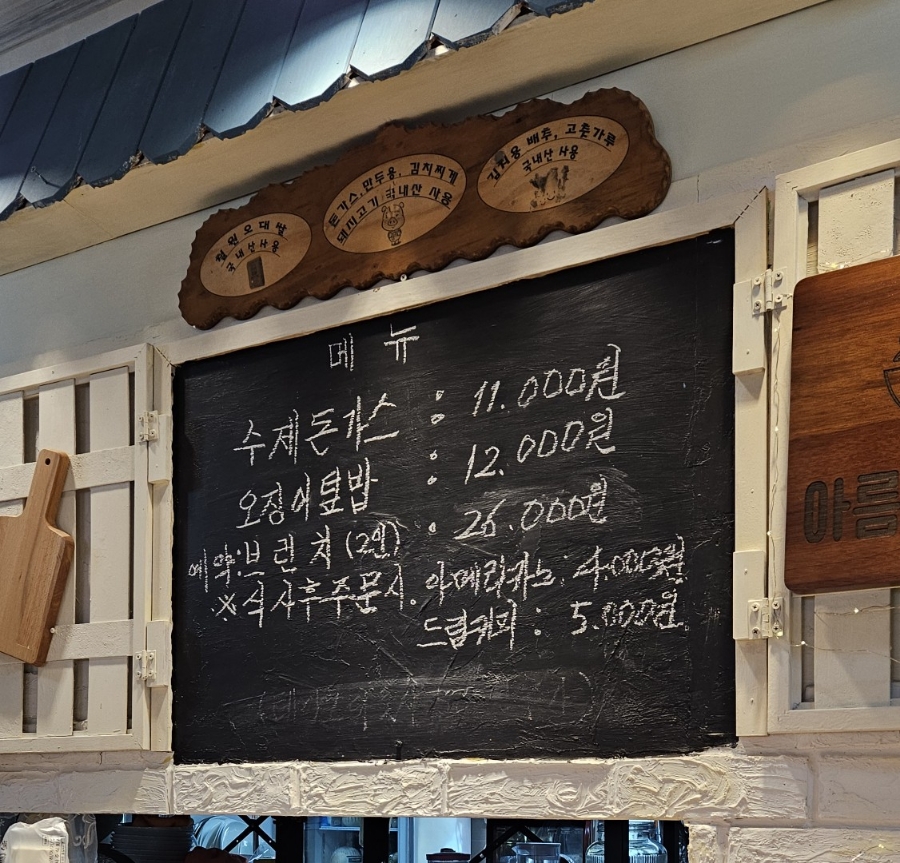 철원오대쌀
국내산사용
돈가스,만두용, 김치찌개
돼지고기 국내산 사용
김치용 배추, 고춧가루
국내산 사용
메뉴
수제돈가스 : 11.000원
오징어덮밥 : 12.000원
예약:브런치(2인) : 26.000원
※식사후주문시. 아메리카노: 4.000원
드립커피 : 5.000원
아름